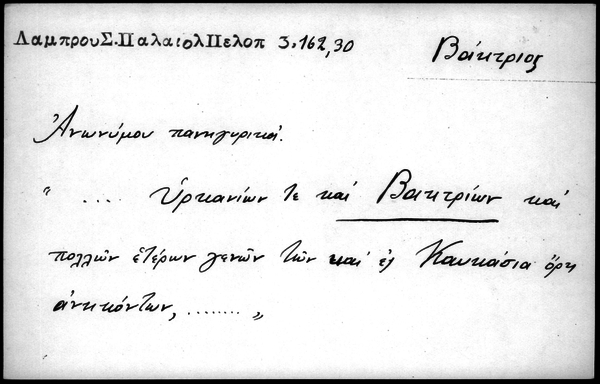 ΛαμπρουΣ.ΠαλαιολΠελοπ 3.162,30
Βάκτριος
Ἀνωνύμου πανηγυρικά.
" .... Ὑρκανίων τε καί Βακτρίων καί
πολλῶν ἑτέρων γενῶν τῶν καί ἐς Καυκάσια ὄρη
ἀνηκόντων, ........ „